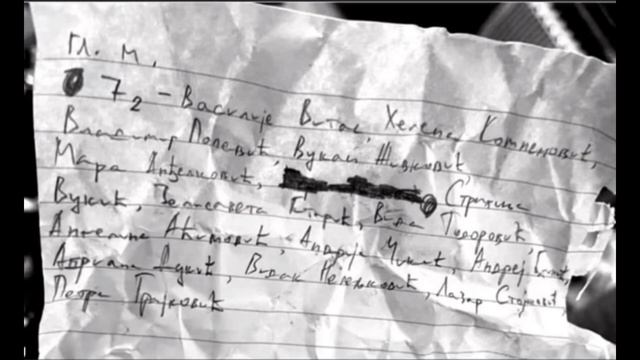 Гл. м.
7₂ - Василије Витас, Хелена Компеновић,
Владимир Полевић, Вукан Живковић,
Мара Анђелковић, Стратина
Вукић, Елисавета Егерић, Вида Тодоровић,
Ангелина Аћимовић, Андрија Чикић, Андреј
Адриана Дукић, Видак Реметковић, Лазар Стојковић
Петра Грајковић